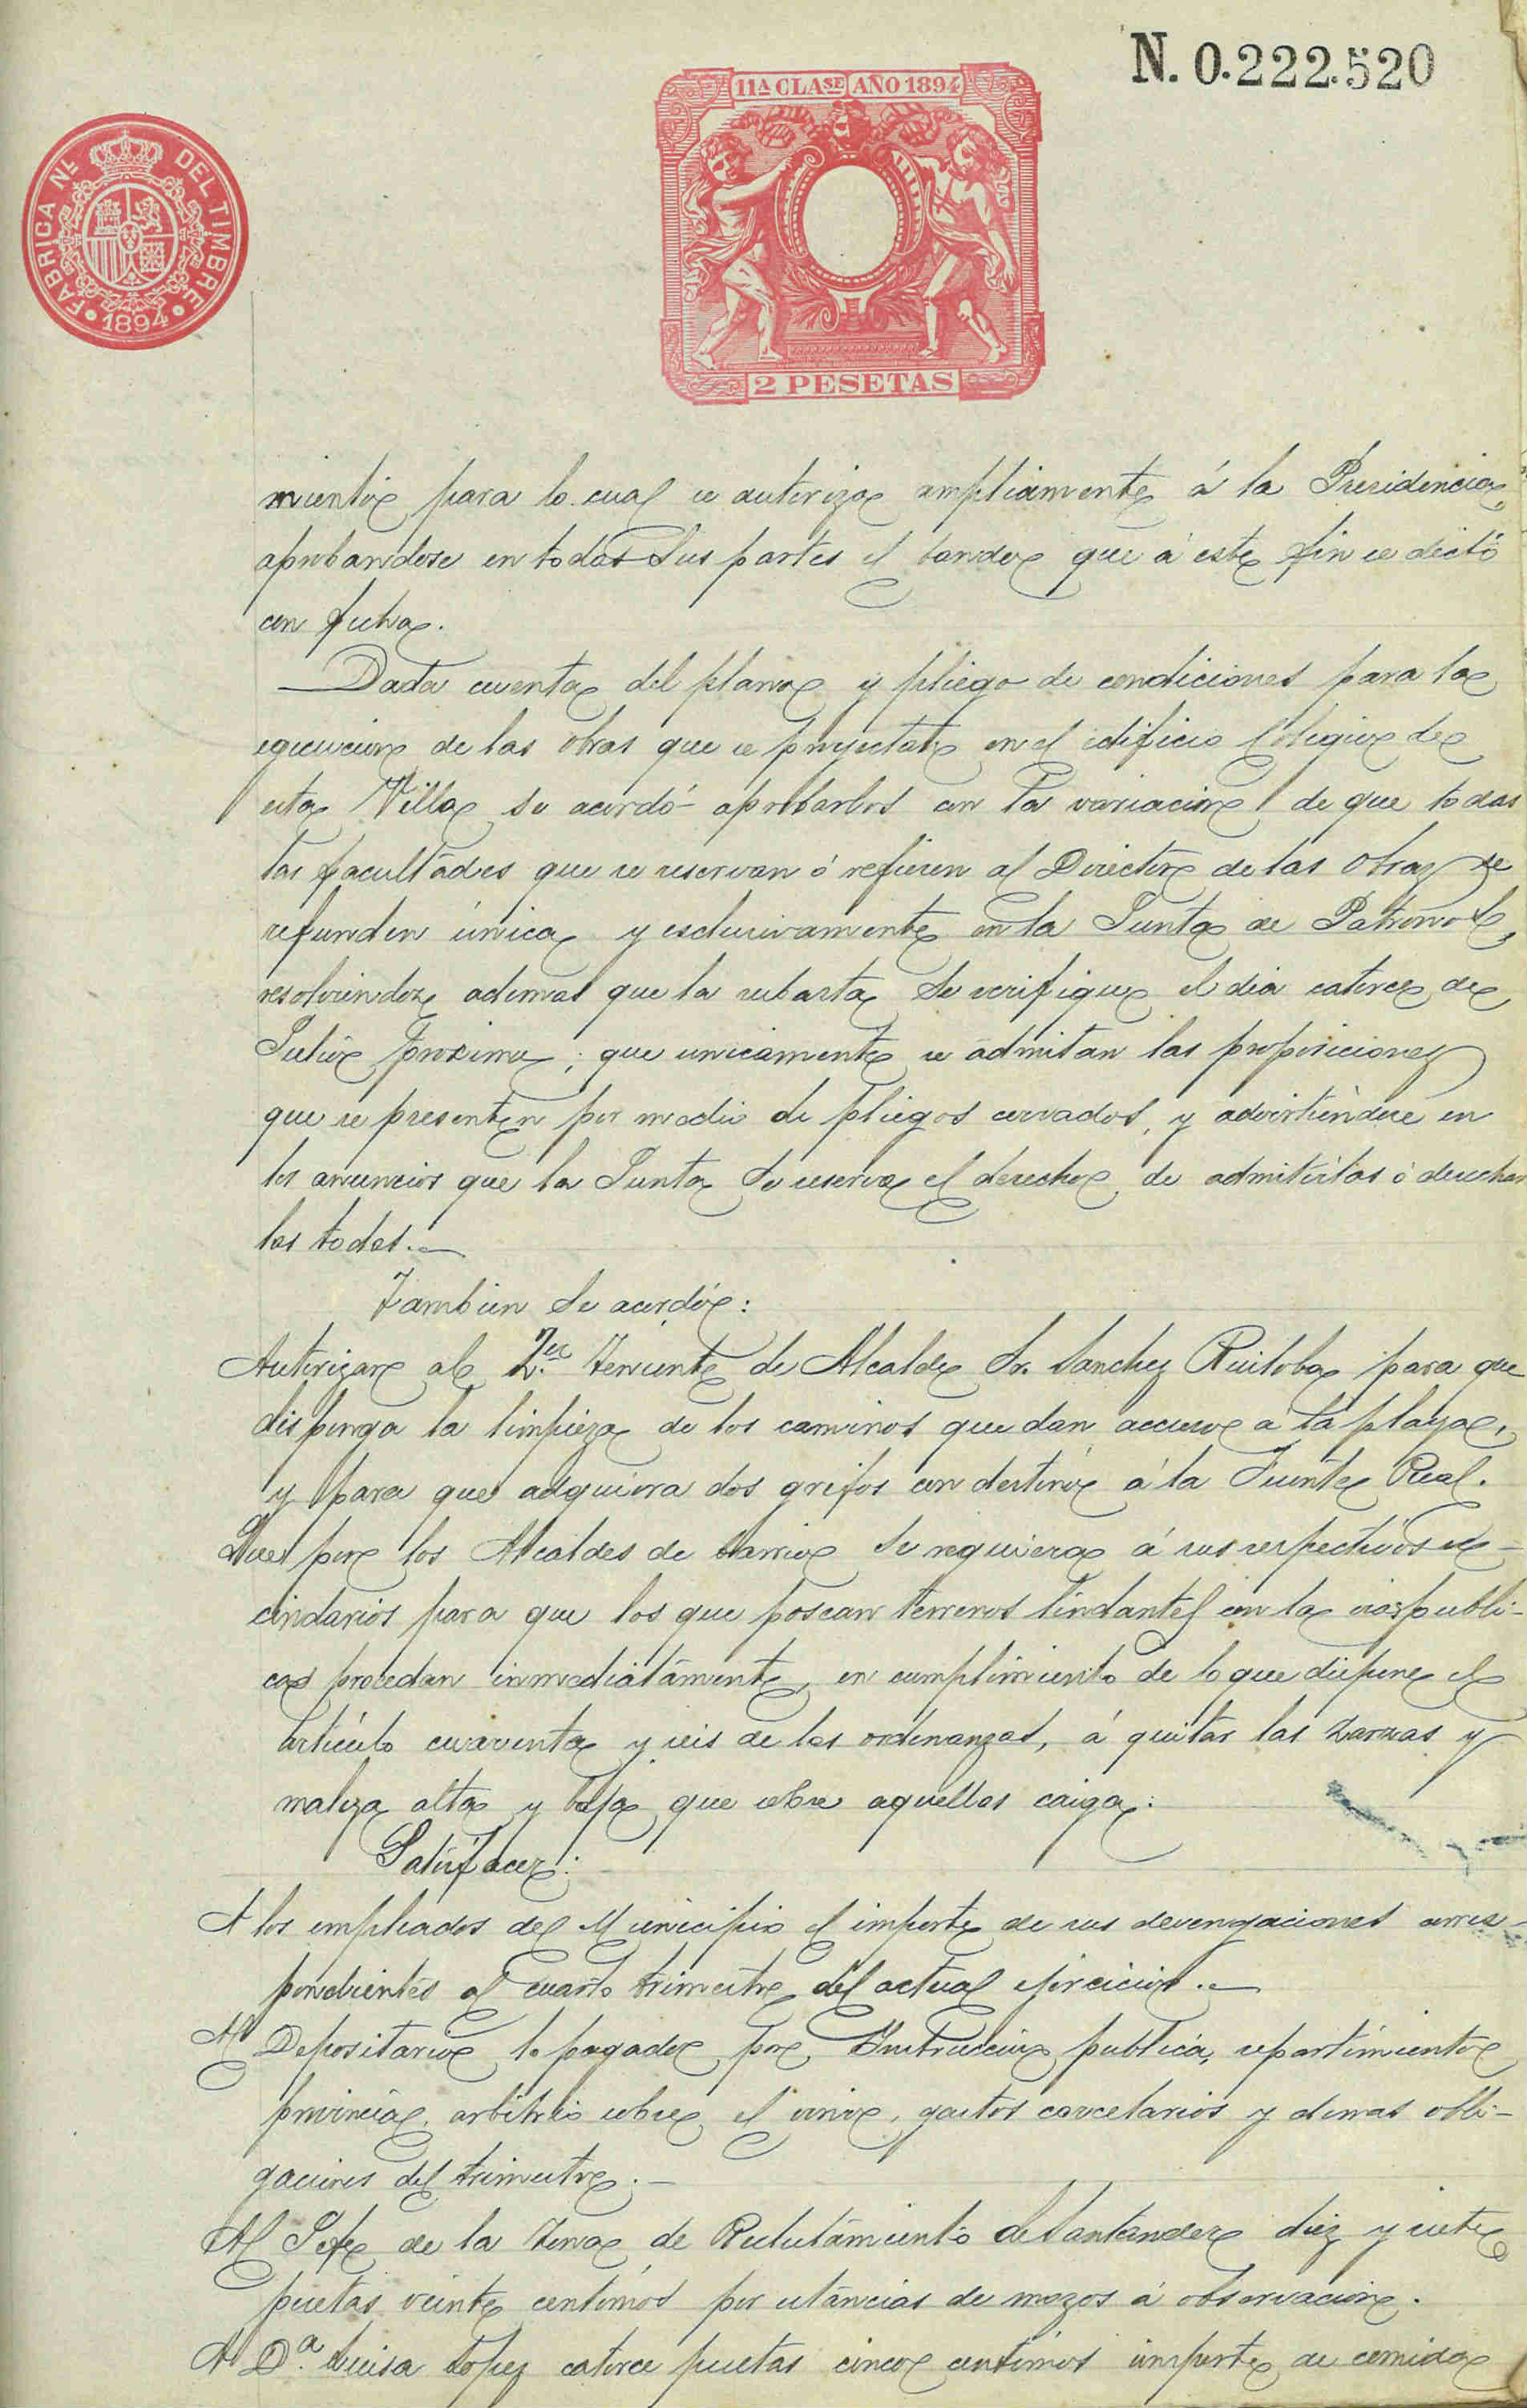 N. 0.222.520
11ª CLASE AÑO 1894
FABRICA NL. DEL TIMBRE
1894
2 PESETAS
miento para lo cual se autoriza ampliamente á la Presidencia,
aprobandose en todas sus partes el bando que á este fin se dictó
con fecha.
Dada cuenta del plano y pliego de condiciones para la
egecucion de las obras que se proyectan en el edificio Colegio de
esta Villa se acordó aprobarlos con la variacion de que todas
las facultades que se reservan ó refieren al Director de las obras se
refunden única y esclusivamente en la Junta de Patronos,
resolviendose ademas que la subasta se verifique el dia catorce de
Julio proximo; que unicamente se admitan las proposiciones
que se presenten por medio de pliegos cerrados, y advirtiendose en
los anuncios que la Junta se reserva el derecho de admitirlas ó desechar
las todas.
Tambien se acordó:
Autorizar al 2.º Teniente de Alcalde Sr. Sanchez Ruiloba para que
disponga la limpieza de los caminos que dan acceso a la playa,
y para que adquiera dos grifos con destino á la Fuente Real.
Que por los Alcaldes de barrio se requiera á sus respectivos ve-
cindarios para que los que posean terrenos lindantes con la via publi-
ca procedan inmediatamente, en cumplimiento de lo que dispone el
articulo cuarenta y seis de las ordenanzas, á quitar las zarzas y
maleza alta y baja que sobre aquellas caiga.
Satisfacer:
A los empleados del Municipio el importe de sus devengaciones corres-
pondientes al cuarto trimestre del actual ejercicio.
Al Depositario lo pagado por Instruccion publica, repartimiento
provincial, arbitrio sobre el vino, gastos carcelarios y demas obli-
gaciones del trimestre.
Al Jefe de la Zona de Reclutamiento de Santander diez y siete
pesetas veinte centimos por estancias de mozos á observacion.
A D.ª Luisa Lopez catorce pesetas cinco centimos importe de comida